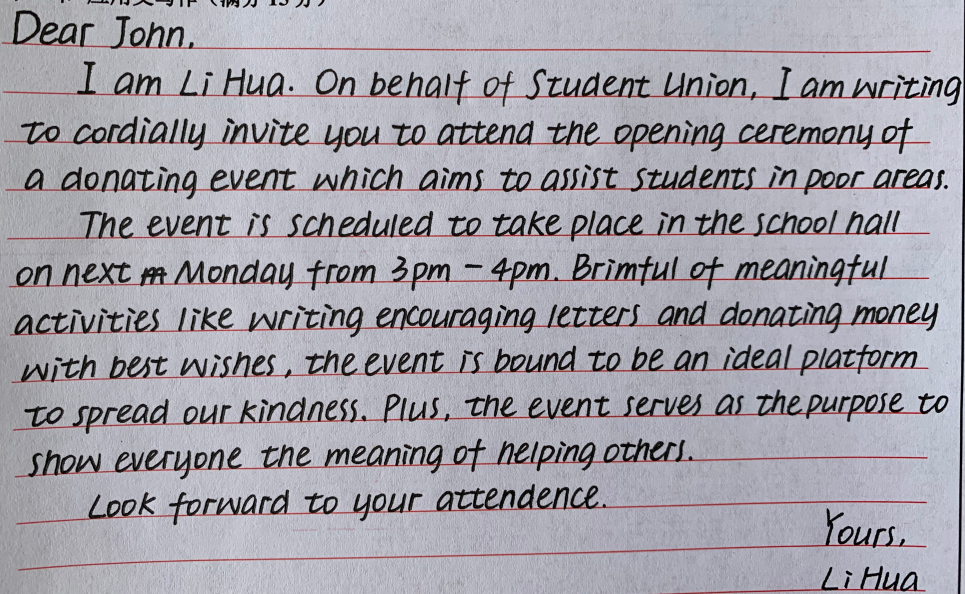 Dear John,
I am Li Hua. On behalf of Student Union, I am writing
to cordially invite you to attend the opening ceremony of
a donating event which aims to assist students in poor areas.
The event is scheduled to take place in the school hall
on next Monday from 3pm - 4pm. Brimful of meaningful
activities like writing encouraging letters and donating money
with best wishes, the event is bound to be an ideal platform
to spread our kindness. Plus, the event serves as the purpose to
show everyone the meaning of helping others.
Look forward to your attendence.
Yours,
Li Hua